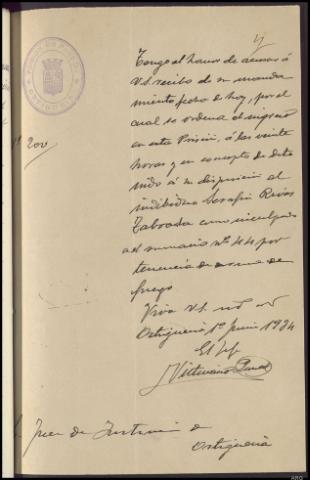 Tengo el honor de acusar á
V.S. recibo de su manda
miento fecha de hoy, por el
cual se ordena el ingreso
en esta Prisión, á las veinte
horas y en concepto de dete
nido á su disposición al
individuo Serafín Rivas
Taboada como inculpado
en el sumario nº 44 por
tenencia de arma de
fuego
Viva V.S. m⁠
Ortigueira 1º Junio 1934
El Jefe
Victoriano
Nº 200
Juez de Instrucción de
Ortigueira